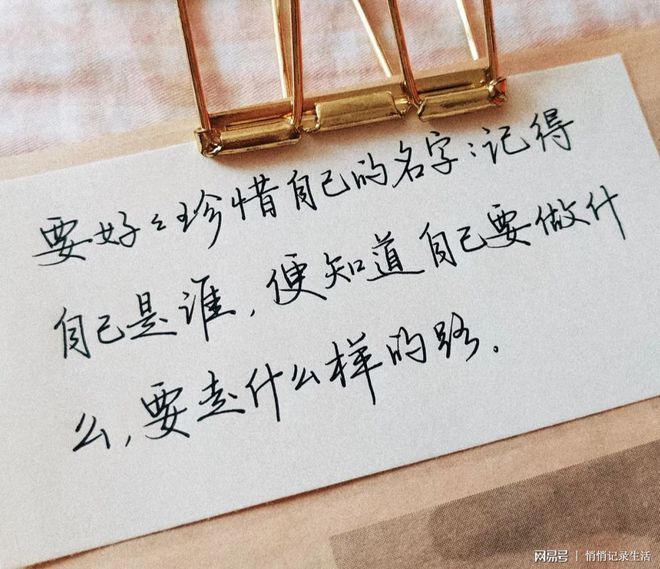 要好々珍惜自己的名字:记得
自己是谁,便知道自己要做什
么,要走什么样的路.
网易号 | 悄悄记录生活